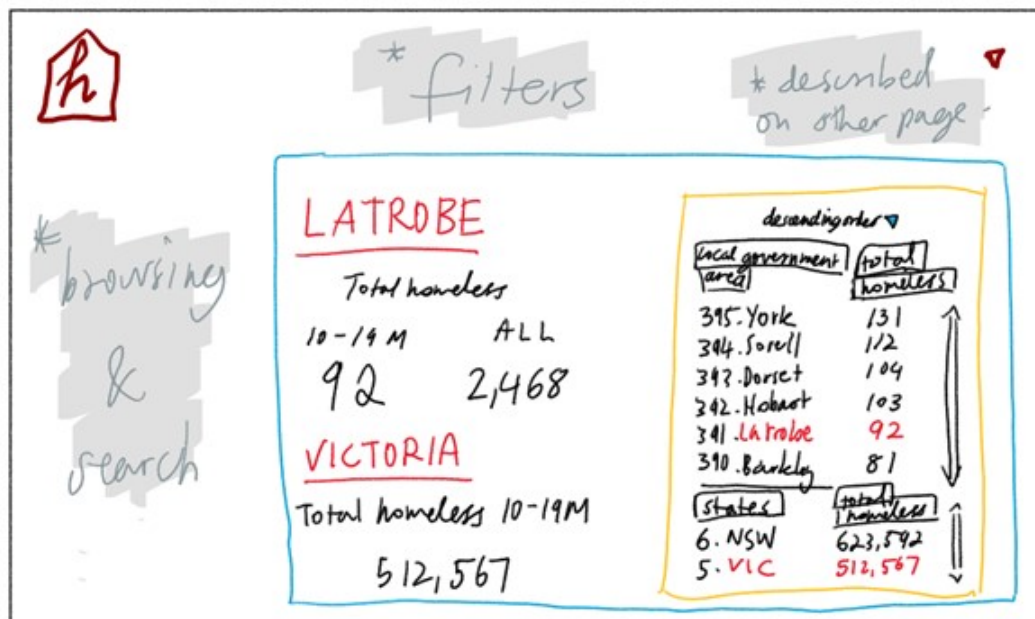 h
* filters
* described
on other page
* browsing
&
search
LATROBE
Total homeless
10-19 M ALL
92 2,468
VICTORIA
Total homeless 10-19M
512,567
descending order
local government total
area homeless
395. York 131
394. Sorell 112
393. Dorset 104
392. Hobart 103
391. Latrobe 92
390. Barkly 81
states total
homeless
6. NSW 623,592
5. VIC 512,567